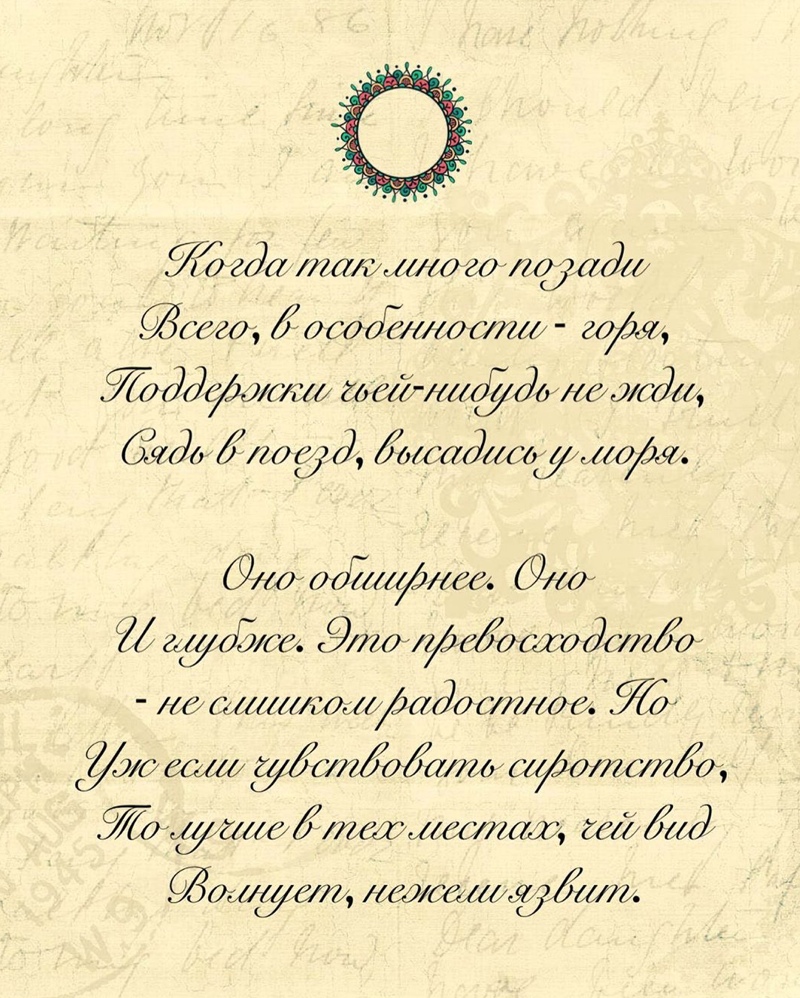 Когда так много позади
Всего, в особенности - горя,
Поддержки чьей-нибудь не жди,
Сядь в поезд, высадись у моря.
Оно обширнее. Оно
И глубже. Это превосходство
- не слишком радостное. Но
Уж если чувствовать сиротство,
То лучше в тех местах, чей вид
Волнует, нежели язвит.